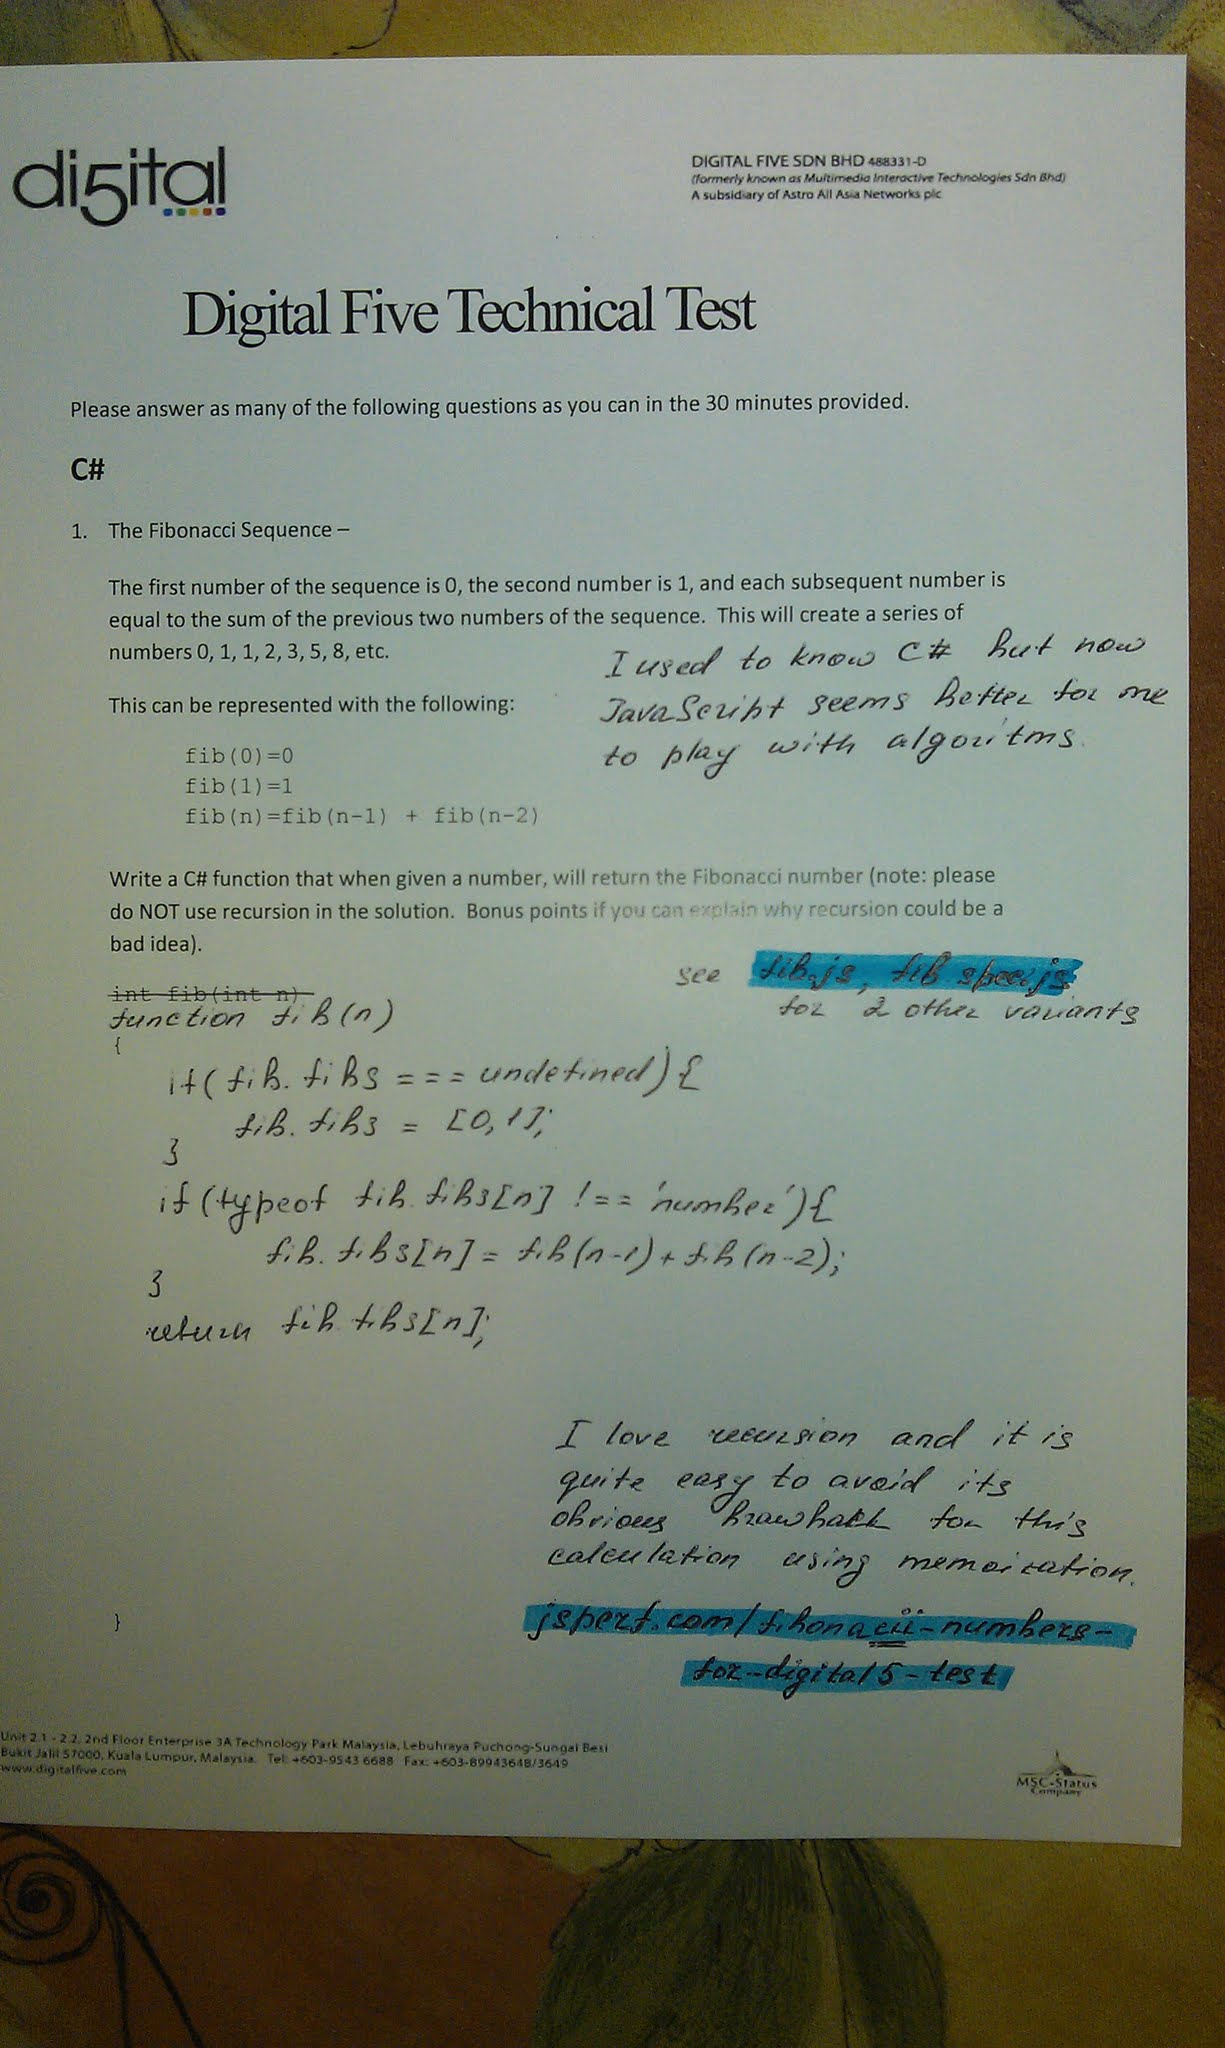 di5ital
DIGITAL FIVE SDN BHD 488331-D
(formerly known as Multimedia Interactive Technologies Sdn Bhd)
A subsidiary of Astro All Asia Networks plc
Digital Five Technical Test
Please answer as many of the following questions as you can in the 30 minutes provided.
C#
1. The Fibonacci Sequence –
The first number of the sequence is 0, the second number is 1, and each subsequent number is
equal to the sum of the previous two numbers of the sequence. This will create a series of
numbers 0, 1, 1, 2, 3, 5, 8, etc.
I used to know C# but now
JavaScript seems better for me
to play with algoritms.
This can be represented with the following:
fib(0)=0
fib(1)=1
fib(n)=fib(n-1) + fib(n-2)
Write a C# function that when given a number, will return the Fibonacci number (note: please
do NOT use recursion in the solution. Bonus points if you can explain why recursion could be a
bad idea).
see fib.js, fib spec.js
for 2 other variants
int fib(int n)
function fib(n)
{
if( fib.fibs === undefined){
fib.fibs = [0,1];
}
if (typeof fib.fibs[n] !== 'number'){
fib.fibs[n] = fib(n-1) + fib(n-2);
}
return fib.fibs[n];
I love recursion and it is
quite easy to avoid its
obvious drawback for this
calculation using memoization.
jsperf.com/fibonacii-numbers-
for-digital5-test
}
Unit 2.1 - 2.2, 2nd Floor Enterprise 3A Technology Park Malaysia, Lebuhraya Puchong-Sungai Besi
Bukit Jalil 57000, Kuala Lumpur, Malaysia. Tel: +603-9543 6688 Fax: +603-89943648/3649
www.digitalfive.com
MSC-Status
Company